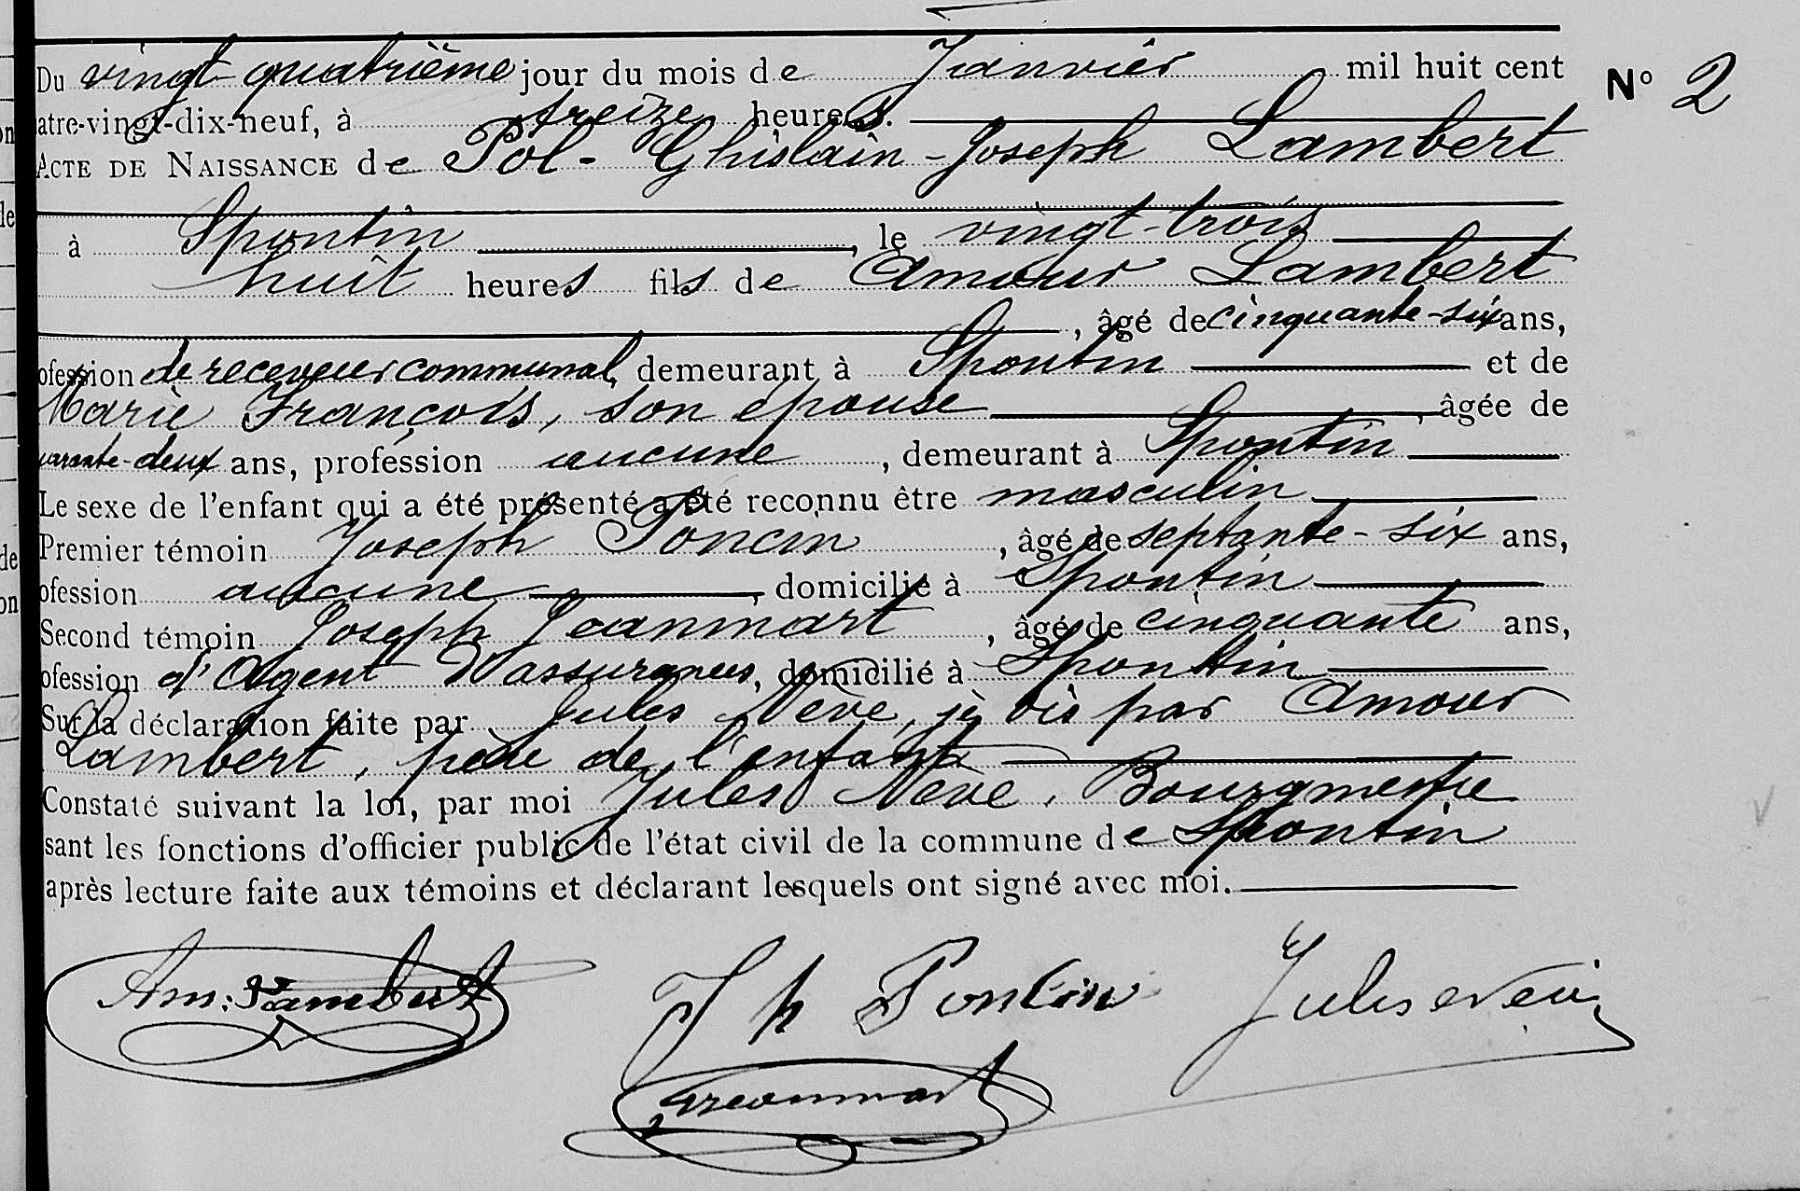 Du vingt-quatrième jour du mois de Janvier mil huit cent
N° 2
atre-vingt-dix-neuf, à treize heures.
ACTE DE NAISSANCE de Pol-Ghislain-Joseph Lambert
à Spontin, le vingt-trois
huit heures fils de Amour Lambert
, âgé de cinquante-six ans,
ofession de receveur communal, demeurant à Spontin et de
Marie François, son épouse, âgée de
uarante-deux ans, profession aucune, demeurant à Spontin
Le sexe de l'enfant qui a été présenté a été reconnu être masculin
Premier témoin Joseph Poncin, âgé de septante-six ans,
ofession aucune, domicilié à Spontin
Second témoin Joseph Jeanmart, âgé de cinquante ans,
ofession d'Agent d'assurances, domicilié à Spontin
Sur la déclaration faite par Jules Nève, je dis par Amour
Lambert, père de l'enfant
Constaté suivant la loi, par moi Jules Nève, Bourgmestre
sant les fonctions d'officier public de l'état civil de la commune de Spontin
après lecture faite aux témoins et déclarant lesquels ont signé avec moi.
Am: Lambert Jh Poncin Jules Nève
Jeanmart